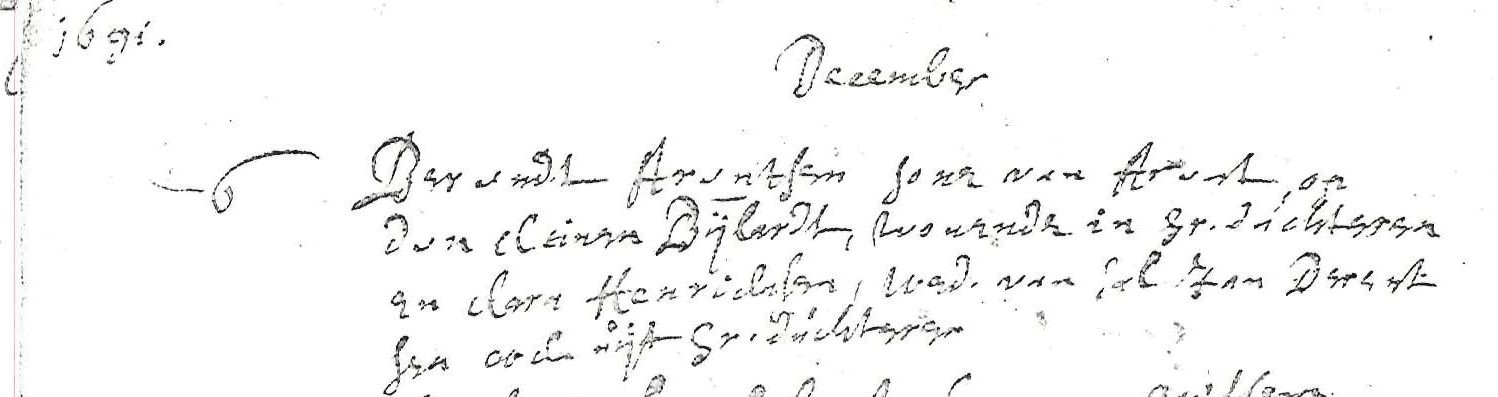 1691.
December
6 Berendt Arentsen sone van Arent, op
den cleinen Bÿlerdt, wonende in Gr. dúchteren
en clara Henrichsen, wed. van sal Jan Derrit
sen ock uÿt Gr. dúchteren